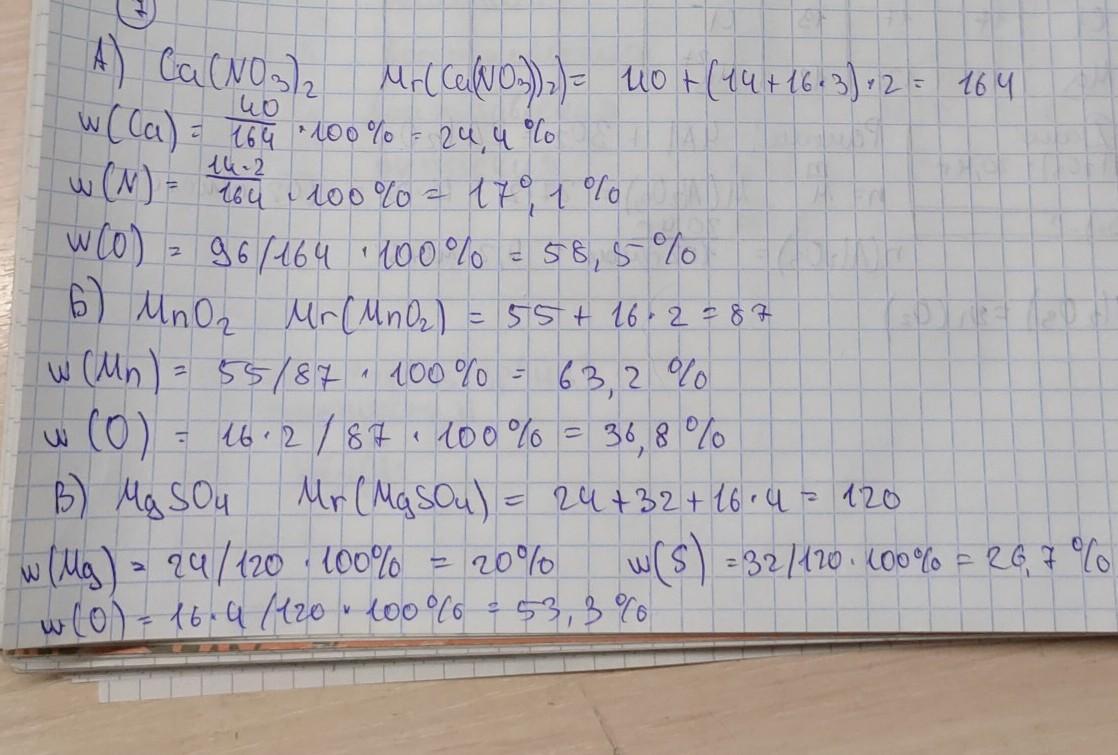 7
А) Ca(NO3)2 Mr(Ca(NO3)2) = 40 + (14+16·3)·2 = 164
w(Ca) = 40/164 · 100% = 24,4%
w(N) = 14·2/164 · 100% = 17,1%
w(O) = 96/164 · 100% = 58,5%
Б) MnO2 Mr(MnO2) = 55 + 16·2 = 87
w(Mn) = 55/87 · 100% = 63,2%
w(O) = 16·2/87 · 100% = 36,8%
В) MgSO4 Mr(MgSO4) = 24+32+16·4 = 120
w(Mg) = 24/120 · 100% = 20% w(S) = 32/120 · 100% = 26,7%
w(O) = 16·4/120 · 100% = 53,3%